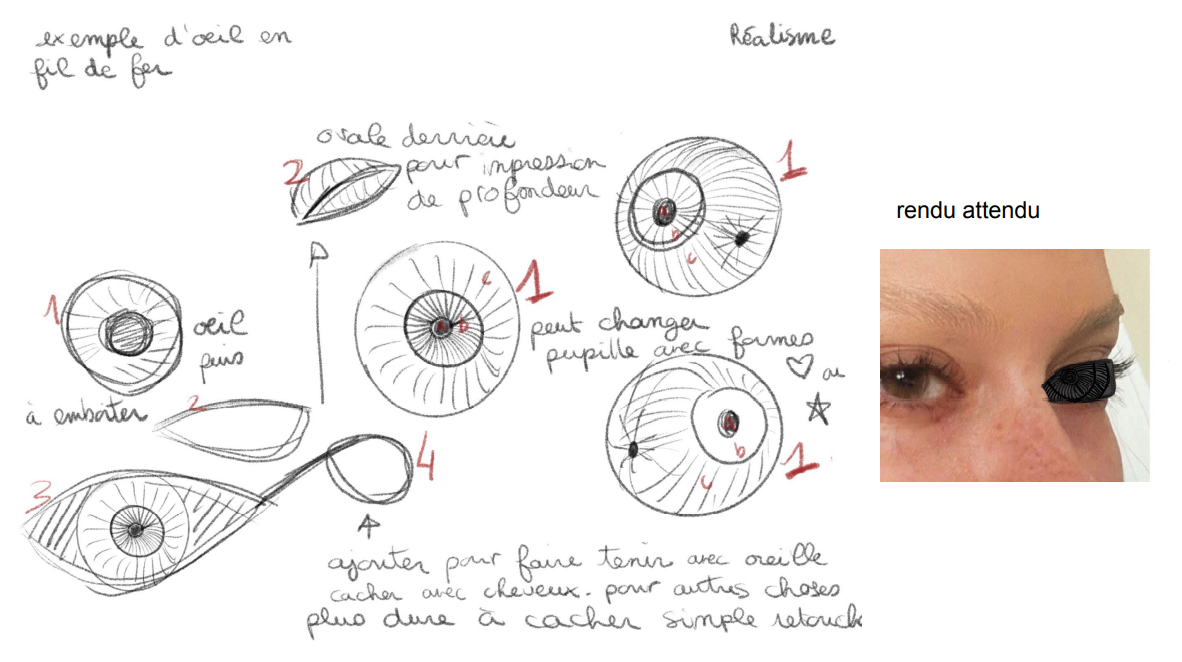 exemple d'oeil en
fil de fer
Réalisme
ovale derrière
pour impression
de profondeur
2
1
rendu attendu
1
oeil
puis
c
A
b
1
peut changer
pupille avec formes
ou
A
b
c
à emboîter
2
3
4
A
b
c
1
ajouter pour faire tenir avec oreille
cacher avec cheveux. pour autres choses
plus dure à cacher simple retouch